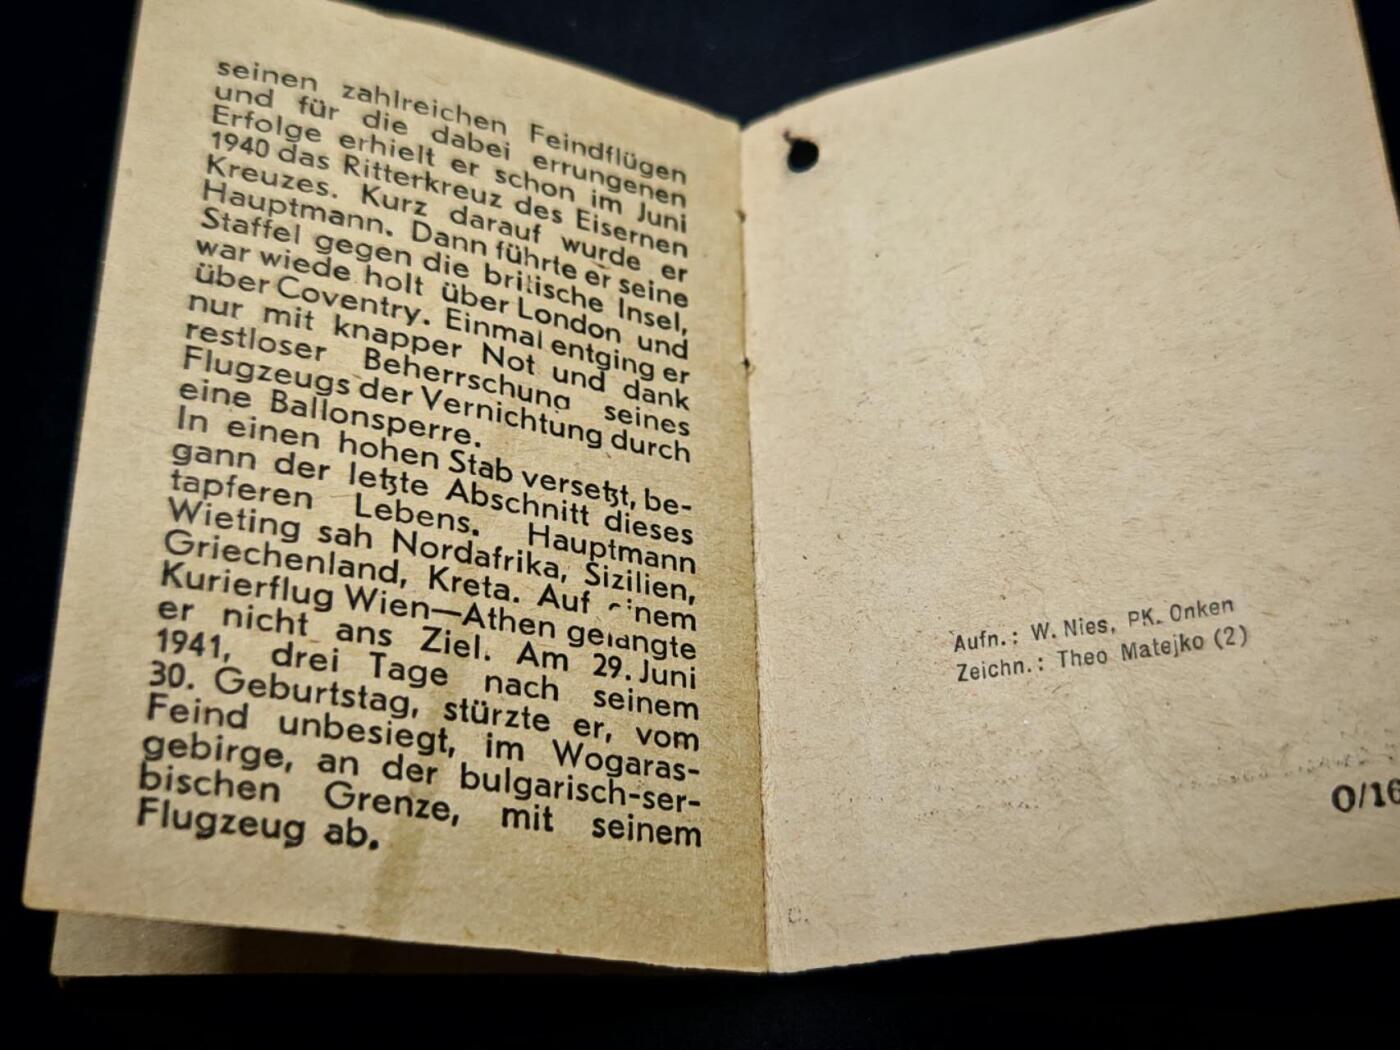 seinen zahlreichen Feindflügen
und für die dabei errungenen
Erfolge erhielt er schon im Juni
1940 das Ritterkreuz des Eisernen
Kreuzes. Kurz darauf wurde er
Hauptmann. Dann führte er seine
Staffel gegen die britische Insel,
war wiede holt über London und
über Coventry. Einmal entging er
nur mit knapper Not und dank
restloser Beherrschung seines
Flugzeugs der Vernichtung durch
eine Ballonsperre.
In einen hohen Stab versetzt, be-
gann der letzte Abschnitt dieses
tapferen Lebens. Hauptmann
Wieting sah Nordafrika, Sizilien,
Griechenland, Kreta. Auf einem
Kurierflug Wien—Athen gelangte
er nicht ans Ziel. Am 29. Juni
1941, drei Tage nach seinem
30. Geburtstag, stürzte er, vom
Feind unbesiegt, im Wogaras-
gebirge, an der bulgarisch-ser-
bischen Grenze, mit seinem
Flugzeug ab.
Aufn.: W. Nies, PK. Onken
Zeichn.: Theo Matejko (2)
O/16